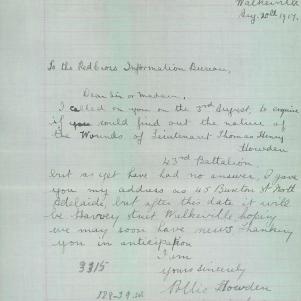 Walkerville
Aug. 20th 1917.
To the Red Cross Information Bureau,
Dear Sir or Madam,
I called on you on the 3rd August, to enquire
if you could find out the nature of
the Wounds of Lieutenant Thomas Henry
Howden
43rd Battalion
but as yet have had no answer, I gave
you my address as 45 Buxton St North
Adelaide, but after this date it will
be Harvey Street Walkerville, hoping
we may soon have news. Thanking
you in anticipation
I am
yours Sincerely
3315
Pollie Howden